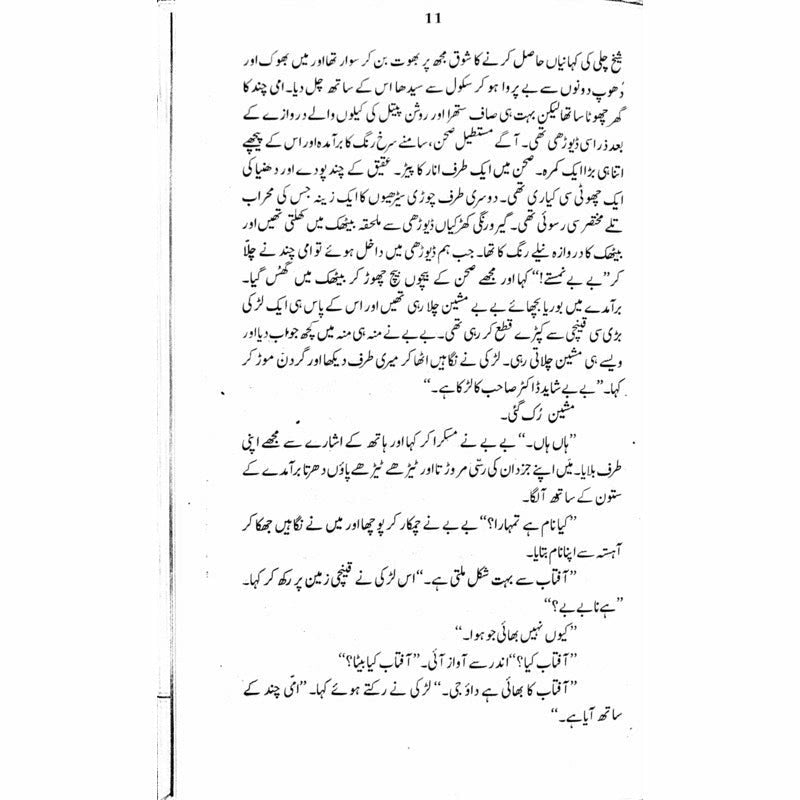 11
شیخ چلی کی کہانیاں حاصل کرنے کا شوق مجھ پر بھوت بن کر سوار تھا اور میں بھوک اور
دُھوپ دونوں سے بے پروا ہو کر سکول سے سیدھا اس کے ساتھ چل دیا۔ امی چند کا
گھر چھوٹا سا تھا لیکن بہت ہی صاف ستھرا اور روشن پیتل کی کیلوں والے دروازے کے
بعد ذرا سی ڈیوڑھی تھی۔ آگے مستطیل صحن، سامنے سرخ رنگ کا برآمدہ اور اس کے پیچھے
اتنا ہی بڑا ایک کمرہ۔ صحن میں ایک طرف انار کا پیڑ۔ عقیق کے چند پودے اور دھنیا کی
ایک چھوٹی سی کیاری تھی۔ دوسری طرف چوڑی سیڑھیوں کا ایک زینہ جس کی محراب
تلے مختصر سی رسوئی تھی۔ گیرو رنگی کھڑکیاں ڈیوڑھی سے ملحقہ بیٹھک میں کھلتی تھیں اور
بیٹھک کا دروازہ نیلے رنگ کا تھا۔ جب ہم ڈیوڑھی میں داخل ہوئے تو امی چند نے چلّا
کر ”بے بے نمستے!“ کہا اور مجھے صحن کے بیچوں بیچ چھوڑ کر بیٹھک میں گھُس گیا۔
برآمدے میں بوریا بچھائے بے بے مشین چلا رہی تھیں اور اس کے پاس ہی ایک لڑکی
بڑی سی قینچی سے کپڑے قطع کر رہی تھی۔ بے بے نے منہ ہی منہ میں کچھ جواب دیا اور
ویسے ہی مشین چلاتی رہی۔ لڑکی نے نگاہیں اٹھا کر میری طرف دیکھا اور گردن موڑ کر
کہا۔ ”بے بے شاید ڈاکٹر صاحب کا لڑکا ہے۔“
مشین رُک گئی۔
”ہاں ہاں۔“ بے بے نے مسکرا کر کہا اور ہاتھ کے اشارے سے مجھے اپنی
طرف بلایا۔ میں اپنے جزدان کی رسّی مروڑتا اور ٹیڑھے ٹیڑھے پاؤں دھرتا برآمدے کے
ستون کے ساتھ آ لگا۔
”کیا نام ہے تمہارا؟“ بے بے نے چمکار کر پوچھا اور میں نے نگاہیں جھکا کر
آہستہ سے اپنا نام بتایا۔
”آفتاب سے بہت شکل ملتی ہے۔“ اس لڑکی نے قینچی زمین پر رکھ کر کہا۔
”ہے نا بے بے؟“
”کیوں نہیں بھائی جو ہوا۔“
”آفتاب کیا؟“ اندر سے آواز آئی۔ ”آفتاب کیا بیٹا؟“
”آفتاب کا بھائی ہے داؤ جی۔“ لڑکی نے رکتے ہوئے کہا۔ ”امّی چند کے
ساتھ آیا ہے۔“